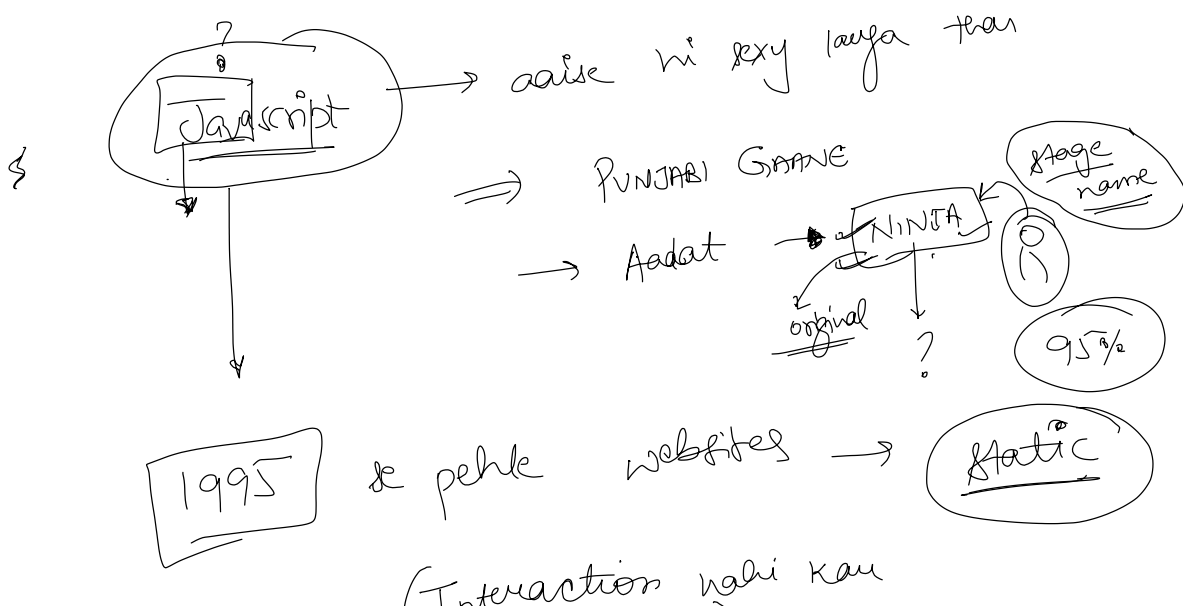 ?
Javascript → aaise hi sexy lauga tha
⇒ PUNJABI GAANE
stage name
→ Aadat → NINJA
original
?
95%
1995 se pehle websites → static
(Interaction nahi kar